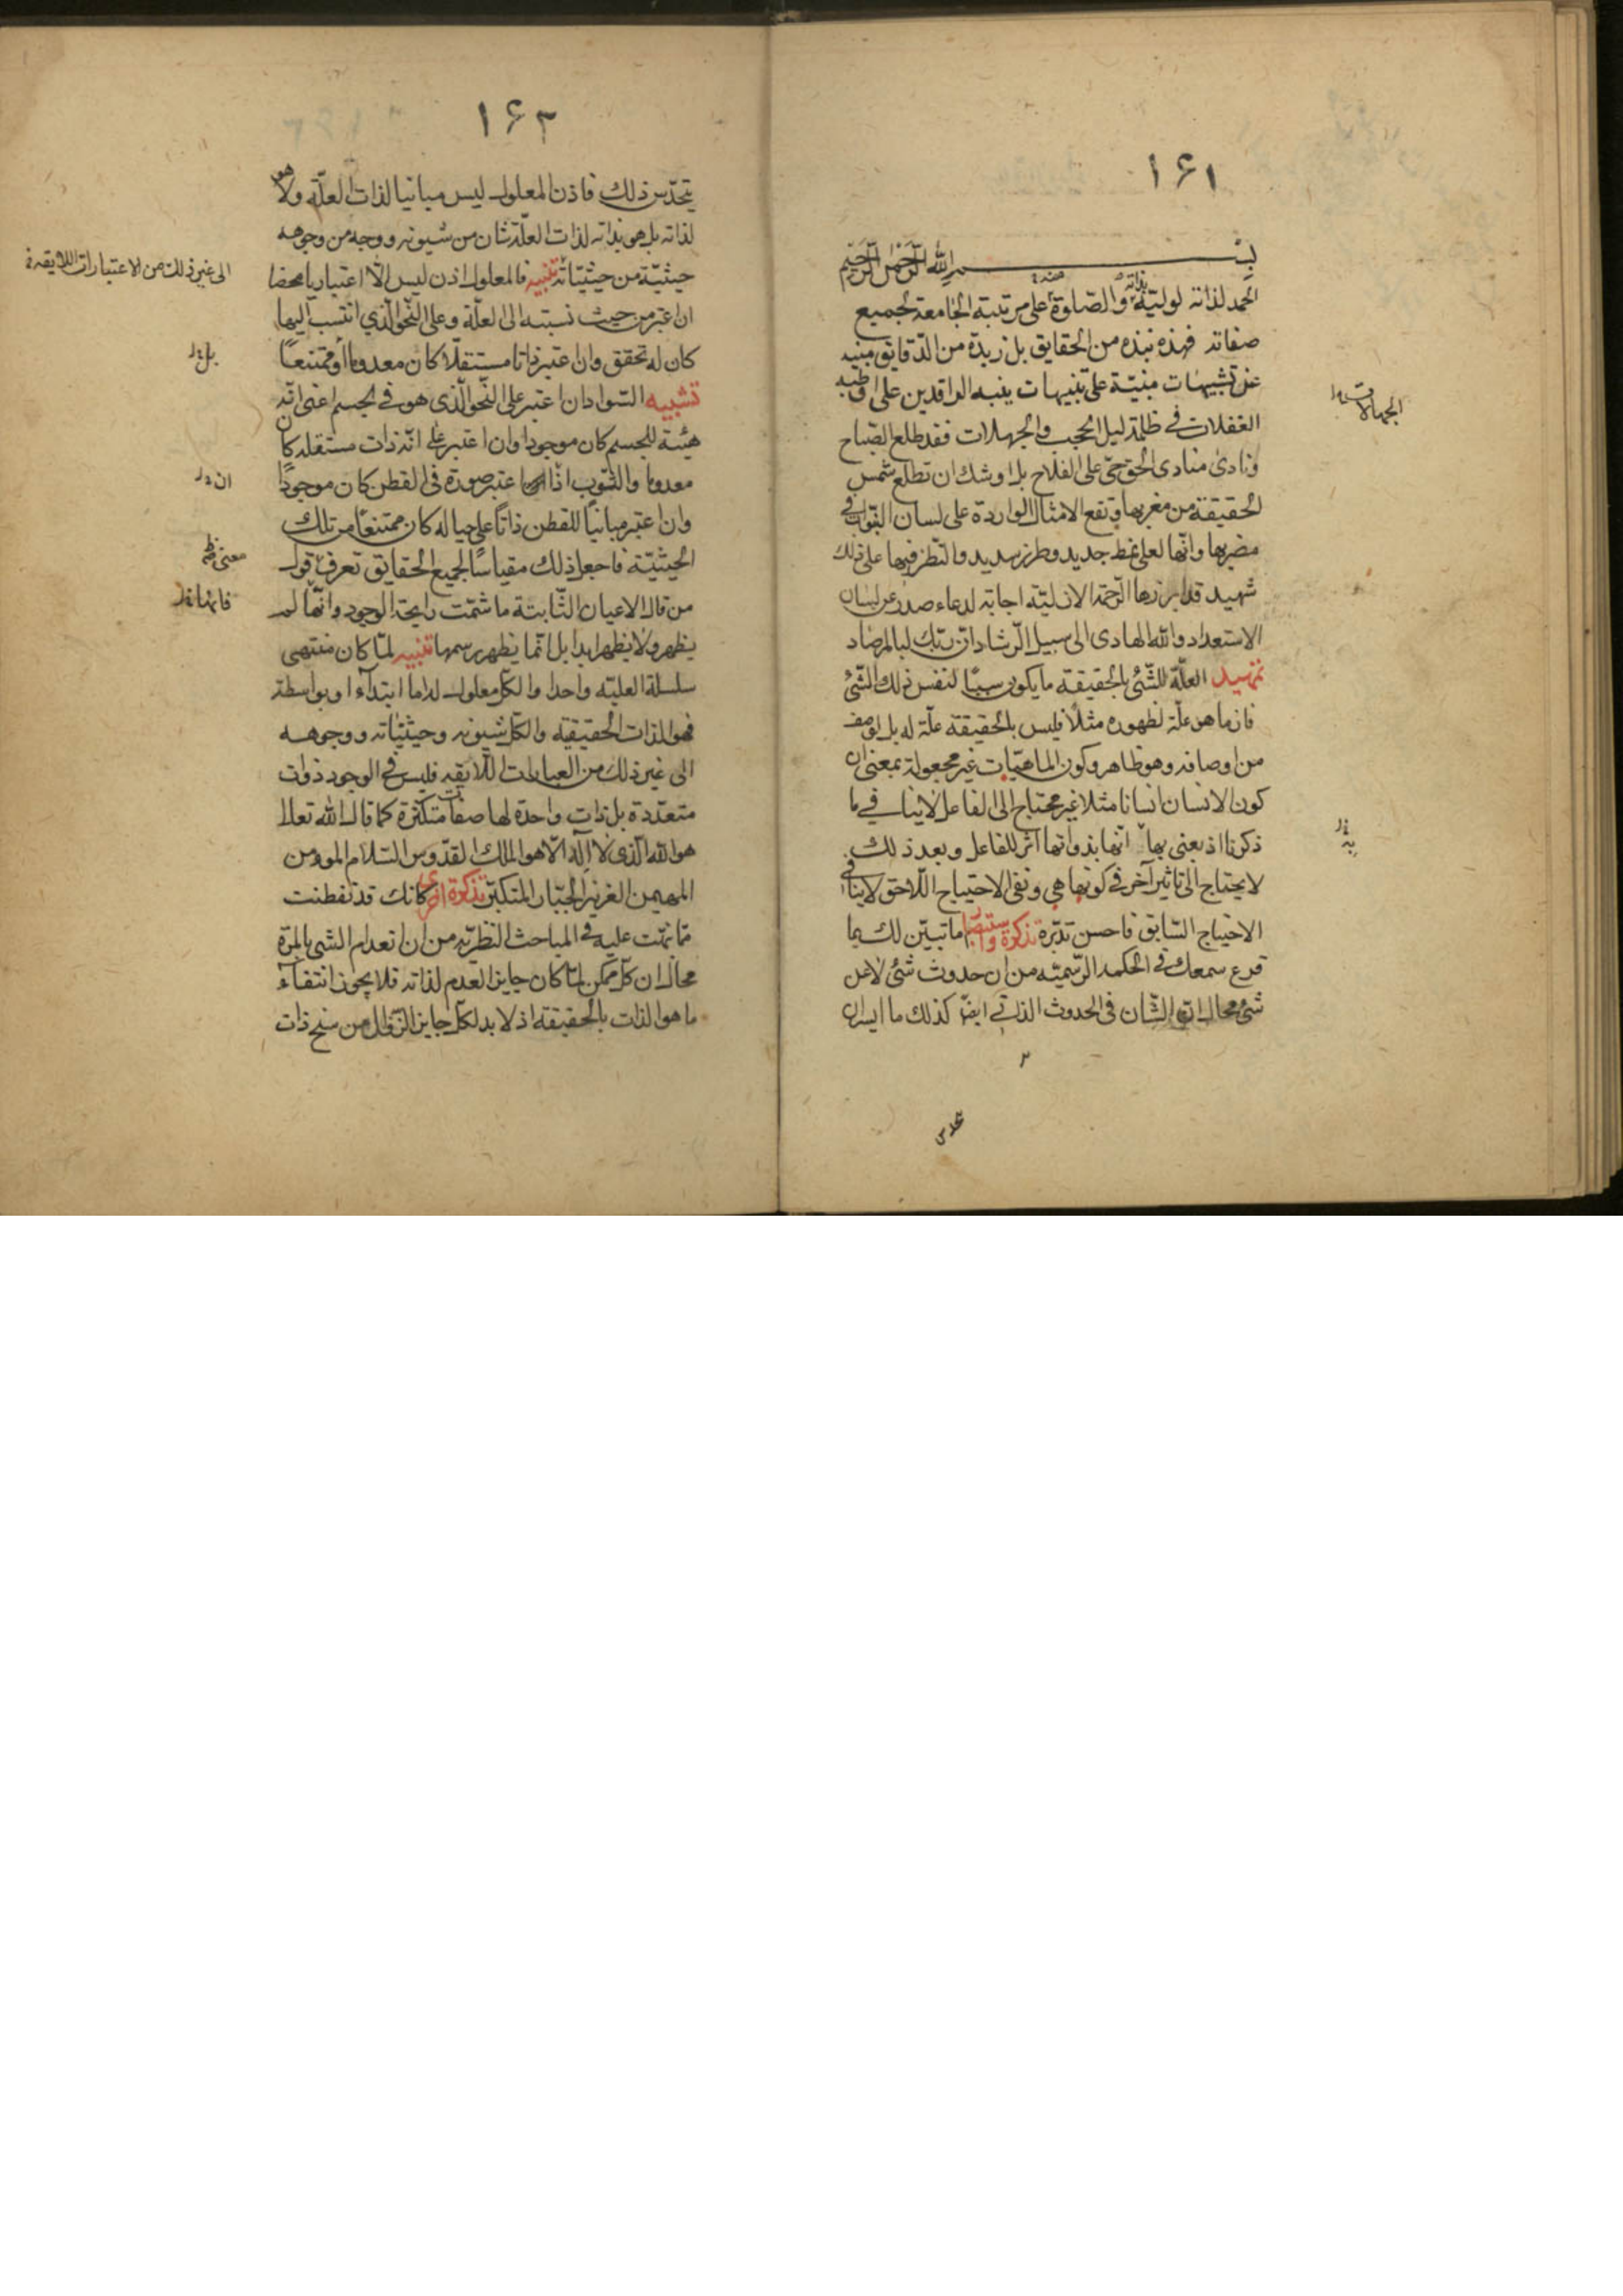 ١۶١
بسم الله الرحمن الرحيم
الحمد لذاته لوليّه بذاته والصّلوة على مرتبة الجامعة لجميع
صفاته فهذه نبذه من الحقايق بل زبدة من الدّقايق مبنيه
عن تشبيهات مبنيّة على تنبيهات ينبه الراقدين على
الغفلات فى ظلمة ليل الحجب والجهالات فقد طلع الصّباح
ونادى منادى الحق حىّ على الفلاح بل اوشك ان تطلع شمس
الحقيقة من مغربها وتقع الامثال الواردة على لسان النبوّات فى
مضربها وانّها لعلى نمط جديد وطرز سديد والنظر فيها على ذلك
شهيد قد ابرزها الرّحمة الازليّه اجابة لدعاء صدر عن لسان
الاستعداد والله الهادى الى سبيل الرّشاد انّ ربّك لبالمرصاد
تمهيد العلّة للشّئ بالحقيقة ما يكون سببًا لنفس ذلك الشّئ
فان ما هو علّة لظهوره مثلا فليس بالحقيقة علّة له بل لوصف
من اوصافه وهو ظاهر وكون الماهيّات غير مجعولة بمعنى ان
كون الانسان انسانا مثلا غير محتاج الى الفاعل لا ينافى ما
ذكرنا اذ يعنى بها انّها بذواتها اثر للفاعل وبعد ذلك
لا يحتاج الى تاثير آخر فى كونها هى ونفى الاحتياج اللّاحق لا ينافى
الاحتياج السّابق فاحسن تدبّره تذكرة واستبصار اما تبيّن لك بما
قرع سمعك فى الحكمه الرّسميّه من ان حدوث شئ لا عن
شئ محال انّ الشّان فى الحدوث الذاتى ايضا كذلك ما ايسر ان
تحدس
١۶٢
يتحدّس ذلك فاذن المعلول ليس مباينا لذات العلّة ولا هو
لذاته بل هو بذاته لذات العلّة شان من شيونه ووجه من وجوهه
حيثيّة من حيثيّاته تنبيه فالمعلول اذن ليس الّا اعتباريا محضا
الى غير ذلك من الاعتبارات اللايقه
ان اعتبر من حيث نسبته الى العلّة وعلى النّحو الّذي انتسب اليها
كان له تحقق وان اعتبر ذاتا مستقلّا كان معدوما او ممتنعًا
تشبيه السّواد ان اعتبر على النّحو الّذى هو فى الجسم اعنى انّه
هيئة للجسم كان موجودا وان اعتبر على انّه ذات مستقله كان
معدوما والثّوب اذا اعتبر صورة فى القطن كان موجودًا
وان اعتبر مباينًا للقطن ذاتًا على حياله كان ممتنعًا من تلك
الحيثيّة فاجعل ذلك مقياسًا لجميع الحقايق تعرف قول
من قال الاعيان الثّابتة ما شمّت رايحة الوجود وانّها لم
يظهر ولا يظهر ابدا بل انّما يظهر رسمها تنبيه لمّا كان منتهى
سلسلة العليّه واحدا والكلّ معلول له اما ابتدآء او بواسطة
فهو الذات الحقيقيّه والكلّ شيونه وحيثيّاته ووجوهه
الى غير ذلك من العبارات اللّايقه فليس فى الوجود ذوات
متعدّدة بل ذات واحدة لها صفات متكثرة كما قال الله تعالى
هو الله الّذى لا اله الّا هو الملك القدّوس السّلام المؤمن
المهيمن العزيز الجبّار المتكبّر تذكرة اخرى كانك قد تفطنت
ممّا نبّهت عليه فى المباحث النظريّه من ان انعدام الشئ بالمرّة
محال ان كلّ ممكن لمّا كان جايز العدم لذاته فلا يجوز انتفآء
ما هو الذات بالحقيقة اذ لا بد لكلّ جايز الزّوال من سنخ ذات